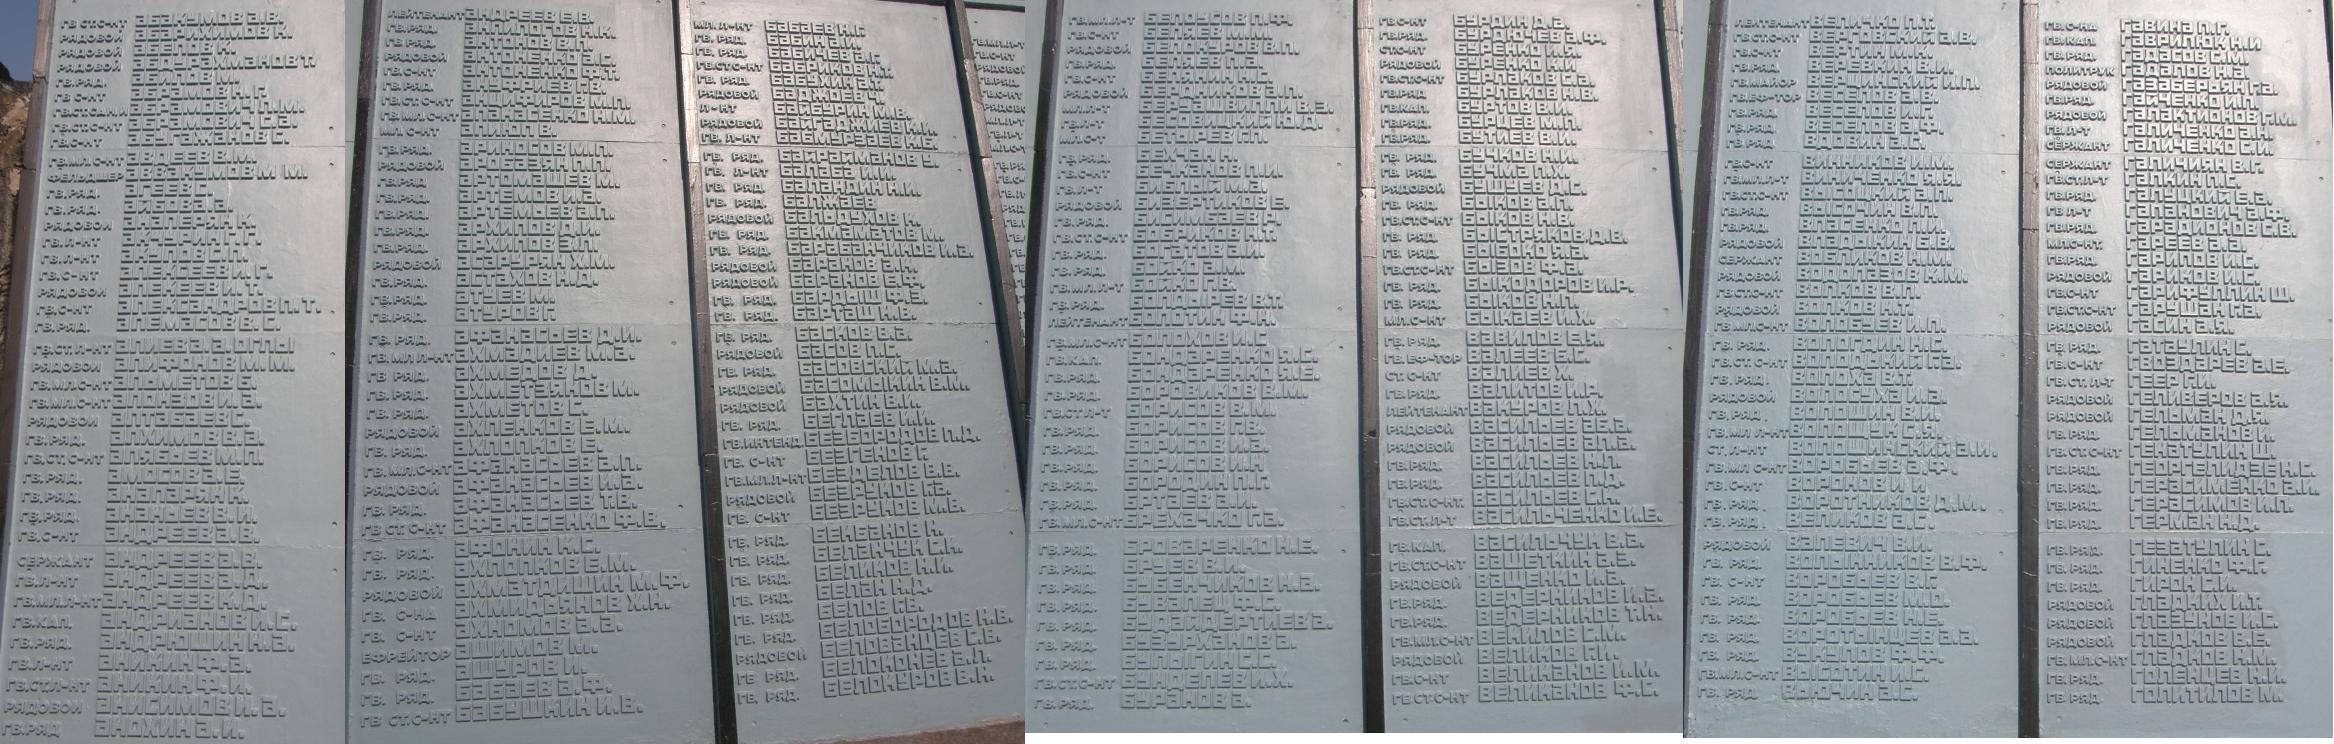 ГВ.СТ.С-НТ АБАКУМОВ А.В.
РЯДОВОЙ АБДРАХИМОВ К.
РЯДОВОЙ АБЕЛОВ К.
РЯДОВОЙ АБДУРАХМАНОВ Т.
ГВ.РЯД. АБИЛОВ М.
ГВ С-НТ АБРАМОВ Н.Г.
АБРАМОВИЧ П.М.
ГВ.СТ.С-НТ АБРАМОВИЧ С.А.
ГВ.С-НТ АБУГАЖАНОВ С.
ГВ.МЛ.С-НТ АВДЕЕВ В.М.
ФЕЛЬДШЕР АВВАКУМОВ М М.
ГВ.РЯД. АГЕЕВ Г.
ГВ.РЯД.
РЯДОВОЙ
ГВ.Л-НТ АКЧУРИН Г.Г.
ГВ.Л-НТ АКУЛОВ С.П.
ГВ.С-НТ АЛЕКСЕЕВ И. Г.
РЯДОВОЙ АЛЕКСЕЕВ И.Т.
ГВ.С-НТ АЛЕКСАНДРОВ П. Т.
ГВ.РЯД. АЛЕМАСОВ В.С.
ГВ.СТ.Л-НТ АЛИЕВ А.А.ОГЛЫ
РЯДОВОЙ АЛИФОНОВ М. М.
ГВ.МЛ.С-НТ АЛОМЕТОВ Б.
ГВ.МЛ.С-НТ АЛОНЗОВ И.А.
РЯДОВОЙ АЛТАЗАЕВ С.
ГВ.РЯД. АЛХИМОВ В.А.
ГВ.СТ.С-НТ АЛЯБЬЕВ М.П.
ГВ.РЯД. АМОСОВ А.Е.
ГВ.РЯД. АНАПАРЯН К.
ГВ.РЯД. АНАНЬЕВ В.И.
ГВ.С-НТ АНДРЕЕВ А.В.
СЕРЖАНТ АНДРЕЕВ А.В.
ГВ.Л-НТ АНДРЕЕВ А.Д.
ГВ.МЛ.Л-НТ АНДРЕЕВ К.Д.
ГВ.КАП. АНДРИАНОВ И.С.
ГВ.РЯД. АНДРЮШИН Н.А.
ГВ.Л-НТ АНИКИН Ф. А.
ГВ.СТ.Л-НТ АНИКИН Ф. И.
РЯДОВОЙ АНИСИМОВ И. А.
ГВ.РЯД АНОХИН А.И.
ЛЕЙТЕНАНТ АНДРЕЕВ Б.В.
ГВ.РЯД. АНПИЛОГОВ Н.К.
ГВ.РЯД. АНТОНОВ В.П.
РЯДОВОЙ АНТОНЕНКО А.С.
ГВ.С-НТ АНТОНЕНКО Ф.Т.
ГВ.РЯД. АНУФРИЕВ Г.В.
ГВ.СТ.С-НТ АНЦИФИРОВ М.П.
ГВ.МЛ.С-НТ АПАНАСЕНКО Н.М.
МЛ.С-НТ АПИЮП В.
ГВ.РЯД. АРИНОСОВ М.П.
РЯДОВОЙ АРОБАВЯН П.П.
ГВ.РЯД. АРТОМАШЕВ М.
ГВ.РЯД. АРТЕМОВ И.А.
ГВ.РЯД. АРТЕМЬЕВ А.П.
ГВ.РЯД. АРХИПОВ Д.И.
ГВ.РЯД. АРХИПОВ З.П.
РЯДОВОЙ АСАРУРЯН Х.М.
ГВ.РЯД. АСТАХОВ Н.Д.
ГВ.РЯД. АТУЕВ М.
ГВ.РЯД. АТУРОВ Г.
ГВ. РЯД. АФАНАСЬЕВ Д.И.
ГВ.МЛ Л-НТ АХМАДИЕВ М.А.
ГВ РЯД. АХМЕДОВ Д.
ГВ РЯД. АХМЕТЗЯНОВ М.
ГВ РЯД. АХМЕТОВ С.
РЯДОВОЙ АХПЕНКОВ Е.М.
ГВ. РЯД. АХПОЛКОВ Е.
ГВ.МЛ.С-НТ АФАНАСЬЕВ А.П.
РЯДОВОЙ АФАНАСЬЕВ И.А.
ГВ. РЯД. АФАНАСЬЕВ Т.В.
ГВ СТ. С-НТ АФАНАСЕНКО Ф.В.
ГВ. РЯД. АФОНИН К.С.
ГВ. РЯД. АХПОЛКОВ Е.М.
РЯДОВОЙ АХМАТДИШИН М.Ф.
ГВ. С-НД АХМИДЬЯНОВ Х.Н.
ГВ. С-НТ АХНОМОВ А.А.
ЕФРЕЙТОР АШИМОВ М.
ГВ. РЯД. АШУРОВ И.
ГВ. РЯД. БАБАЕВ А.Ф.
ГВ СТ.С-НТ БАБУШКИН И.В.
МЛ.Л-НТ БАБАЕВ Н.Г.
ГВ. РЯД. БАБИН А.И.
ГВ. РЯД. БАБИЧ В.Г.
ГВ.СТ.С-НТ БАБИКОВ Н.Т.
ГВ. РЯД. БАБУХИН А.
РЯДОВОЙ БАДЖОЕВ Ч.
Л-НТ БАЙБУРИН М.В.
РЯДОВОЙ БАЙГАДЖИЕВ И.И.
ГВ. Л-НТ БАЙМУРЗАЕВ Ж.Б.
ГВ. РЯД. БАЙРАЙМАНОВ Б.
ГВ. Л-НТ БАЛАБА И.И.
ГВ. РЯД БАЛАНДИН Н.И.
ГВ. РЯД. БАЛЖАЕВ
РЯДОВОЙ БАЛЬДУХОВ К.
ГВ. РЯД. БАКМАМАТОВ М.
ГВ. РЯД. БАРАБАНЧИКОВ И.А.
РЯДОВОЙ БАРАНОВ А.Н.
РЯДОВОЙ БАРАНОВ Е.Ф.
ГВ. РЯД. БАРДЫШ Ф.З.
ГВ. РЯД. БАРТАШ Н.В.
ГВ. РЯД. БАСКОВ В.А.
РЯДОВОЙ БАСОВ П.С.
ГВ. РЯД. БАСОВСКИЙ М.А.
РЯДОВОЙ БАСОМЫКИН В.М.
РЯДОВОЙ БАХТИН В.И.
ГВ. РЯД. БЕГЛАЕВ И.И.
ГВ.ИНТЕНД. БЕЗБОРОДОВ П.Д.
ГВ. С-НТ БЕЗГЕНОВ Г.
ГВ.МЛ.Л-НТ БЕЗДЕЛОВ В.В.
РЯДОВОЙ БЕЗРУКОВ Г.Е.
ГВ. С-НТ БЕЗРУКОВ М.В.
ГВ. РЯД. БЕКБАНОВ Н.
ГВ. РЯД. БЕЛАНЧУК С.К.
ГВ. РЯД. БЕЛИКОВ Н.И.
ГВ. РЯД. БЕЛАН Н.Д.
ГВ. РЯД. БЕЛОВ Г.В.
ГВ. РЯД. БЕЛОБОРОДОВ Н.В.
РЯДОВОЙ БЕЛОВАНЦЕВ С.В.
ГВ. РЯД. БЕЛОКОНЕВ А.Л.
ГВ. РЯД. БЕЛОКУРОВ В.Н.
ГВ.МЛ.Л-Т БЕЛОУСОВ П.Ф.
ГВ.С-НТ БЕЛЯЕВ М.М.
РЯДОВОЙ БЕЛОКУРОВ В.П.
ГВ.РЯД.
ГВ.РЯД.
РЯДОВОЙ БЕРДНИКОВ А.П.
МЛ.Л-Т БЕРУАШВИЛЛИ В.З.
ГВ.Л-Т БЕСОВИЦКИЙ Ю.Д.
МЛ.С-Т БЕТЫРЕВ Г.П.
ГВ.РЯД. БЕХЧАН Н.
ГВ.РЯД. БЕЧКАНОВ П.И.
ГВ.Л-Т БИБЛЫЙ М.А.
РЯДОВОЙ БИЗЕРТИКОВ Е.
ГВ.РЯД. БИСИМБАЕВ Р.
ГВ.СТ.С-НТ БОБРИКОВ Н.Т.
ГВ.РЯД. БОГАТОВ В.И.
ГВ.РЯД. БОЙКО А.М.
ГВ.МЛ.Л-Т БОЙКО Г.В.
ГВ.РЯД. БОЛДЫРЕВ В.Т.
ЛЕЙТЕНАНТ БОЛОТИН Ф.Н.
ГВ.МЛ.С-НТ БОЛОХОВ И.С.
ГВ.КАП. БОНДАРЕНКО Я.С.
ГВ.РЯД. БОНДАРЕНКО Я.Е.
ГВ.РЯД. БОРОВИКОВ В.М.
ГВ.СТ.Л-Т БОРИСОВ В.М.
ГВ.РЯД. БОРИСОВ Г.В.
ГВ.РЯД. БОРИСОВ И.А.
ГВ.РЯД. БОРИСОВ И.Н.
ГВ.РЯД. БОРОДИН П.Г.
ГВ.РЯД. БРТАЕВ А.И.
ГВ.МЛ.С-НТ БРЕХАЧКО Г.А.
ГВ.РЯД. БРОВАРЕНКО Н.Е.
ГВ.РЯД. БРУЕВ В.И.
ГВ.РЯД. БУБЕНЧИКОВ Н.А.
ГВ.РЯД. БУВАЛЕЦ Ф.С.
ГВ.РЯД. БУДАЙДЕРТИЕВ А.
ГВ.РЯД. БУЗУРХАНОВ А.
ГВ.РЯД. БУЛЫГИН С.С.
ГВ.СТ.С-НТ БУНДЕЛЕВ И.Х.
ГВ.РЯД. БУРАНОВ А.
ГВ.С-НТ БУРДИН Д.А.
ГВ.РЯД. БУРДЮЧЕВ А.Ф.
СТ.С-НТ БУРЕНКО И.Я.
РЯДОВОЙ БУРЕНКО К.И.
ГВ.СТ.С-НТ БУРЛАКОВ С.А.
ГВ.РЯД БУРЛАКОВ Н.В.
ГВ.КАП. БУРТОВ В.И.
ГВ.РЯД. БУРЦЕВ М.П.
ГВ.РЯД. БУТИЕВ В.И.
ГВ. РЯД. БУЧКОВ Н.И.
ГВ. РЯД БУЧМА П.Х.
РЯДОВОЙ БУШУЕВ Д.С.
ГВ. РЯД. БЫКОВ А.
ГВ.СТ.С-НТ БЫКОВ Н.В.
ГВ. РЯД БЫСТРЯКОВ Д.В.
ГВ. РЯД. БЫБКО Я.А.
ГВ.СТ.С-НТ БЫЗОВ Ф.А.
ГВ. РЯД. БЫКОДОРОВ И.Р.
ГВ. РЯД. БЫКОВ Н.П.
МЛ.С-НТ БЫКАЕВ И.Х.
ГВ. РЯД. ВАВИЛОВ Е.Я.
ГВ. ЕФ-ТОР ВАЛЕЕВ Б.С.
СТ. С-НТ ВАЛИЕВ Х.
ГВ. РЯД. ВАЛИТОВ И.Р.
ЛЕЙТЕНАНТ ВАКУРОВ Л.Х.
РЯДОВОЙ ВАСИЛЬЕВ А.Б.А.
РЯДОВОЙ ВАСИЛЬЕВ АЛ.А.
ГВ.РЯД. ВАСИЛЬЕВ Н.Л.
ГВ.РЯД. ВАСИЛЬЕВ П.Д.
ГВ.СТ.С-НТ. ВАСИЛЬЕВ С.К.
ГВ.СТ.Л-Т ВАСИЛЬЧЕНКО И.Е.
ГВ.КАП. ВАСИЛЬЧУК В.А.
ГВ.СТ.С-НТ ВАШЕТКИН А.З.
РЯДОВОЙ ВАЩЕНКО И.Е.
ГВ.РЯД. ВЕДЕРНИКОВ И.А.
ГВ.РЯД. ВЕДЕРНИКОВ Т.Н.
ГВ.МЛ.С-НТ ВЕКИЛОВ С.М.
РЯДОВОЙ ВЕЛИКОВ Г.И.
ГВ.С-НТ ВЕЛИКАНОВ И.М.
ГВ СТ.С-НТ ВЕЛИКАНОВ Ф.С.
ЛЕЙТЕНАНТ ВЕЛИЧКО П.Т.
ГВ.СТ.С-НТ ВЕРБОВСКИЙ А.В.
ГВ.С-НТ ВЕРТИЙ М.К.
ГВ.РЯД.
ГВ.МАЙОР ВЕРШИНСКИЙ И.П.
ГВ.ЕФ-ТОР ВЕСЕЛОВ А.В.
ГВ.РЯД. ВЕСЕЛОВ А.Ф.
ГВ.РЯД. ВДОВИН А.С.
ГВ.С-НТ ВИННИКОВ И.М.
ГВ.МЛ.Л-Т ВИНИЧЕНКО Я.Я.
ГВ.СТ.С-НТ ВИТОВЦЕВ К.И.
ГВ.РЯД. ВИСОЧИН В.П.
ГВ.РЯД. ВЛАСЕНКО П.И.
РЯДОВОЙ ВЛАДЫКИН Б.В.
СЕРЖАНТ ВОБЛИКОВ Н.М.
РЯДОВОЙ ВОДОЛАЗОВ К.М.
ГВ.СТ.С-НТ ВОЛКОВ В.П.
РЯДОВОЙ ВОЛКОВ Н.Г.
ГВ МЛ.С-НТ ВОЛОБУЕВ И.П.
ГВ. РЯД. ВОЛОГДИН Н.С.
ГВ.СТ. С-НТ ВОЛОДИЦКИЙ Г.А.
ГВ. РЯД. ВОЛОХА В.Т.
РЯДОВОЙ ВОЛОСУХА И.А.
ГВ. РЯД. ВОЛОШИН В.И.
ГВ. МЛ Л-НТ ВОЛОЩУК С.Я.
СТ. Л-НТ ВОЛОШИНСКИЙ А.И.
ГВ.МЛ С-НТ ВОРОБЬЕВ А.Ф.
ГВ.С-НТ ВОРОНОВ И.И.
ГВ. РЯД. ВОРОТНИКОВ Д.М.
ГВ. РЯД. ВЕЛИКОВ А.С.
РЯДОВОЙ ВАЛЕВИЧ В.И.
ГВ. РЯД. ВОЛЫННИКОВ В.Ф.
ГВ. С-НТ ВОРОБЬЕВ В.Г.
ГВ. РЯД. ВОРОБЬЕВ М.О.
ГВ. РЯД. ВОРОБЬЕВ Н.Е.
ГВ. РЯД. ВОРОТЫНЦЕВ А.А.
ГВ. РЯД. ВУКУЛОВ Ф.Ф.
ГВ.МЛ.С-НТ ВЫСОТИН А.С.
ГВ. РЯД ВЬЮЧИН А.С.
ГВ. С-НД ГАВИНА П.Г.
ГВ.КАП. ГАВРИЛЮК Н.И
ГВ.РЯД. ГАДАСОВ С.М.
ПОЛИТРУК ГАДАЛОВ Н.А.
РЯДОВОЙ ГАЗАБЕРЬЯН Г.А.
ГВ.РЯД. ГАЙЧЕНКО И.П.
РЯДОВОЙ ГАЛАКТИОНОВ Г.М.
ГВ.Л-Т ГАЛИЧЕНКО А.Н.
СЕРЖАНТ ГАЛИЧЕНКО С.И.
СЕРЖАНТ ГАЛИЧИЯН В.Г.
ГВ.СТ.Л-Т ГАЛКИН П.С.
ГВ.РЯД. ГАЛУЩКИЙ Е.А.
ГВ.Л-Т ГАПАНОВИЧ А.Ф.
ГВ.РЯД. ГАРАДИОНОВ С.В.
МЛ.С-НТ. ГАРЕЕВ А.А.
ГВ.РЯД. ГАРИПОВ И.С.
РЯДОВОЙ ГАРИКОВ И.С.
ГВ.С-НТ ГАРИФУЛЛИН Ш.
ГВ.СТ.С-НТ ГАРУШАН Г.А.
РЯДОВОЙ ГАСИН А.Я.
ГВ.РЯД. ГАТАУЛИН С.
ГВ.С-НТ ГВОЗДАРЕВ А.Е.
ГВ.СТ.Л-Т ГЕЕР Г.И.
РЯДОВОЙ ГЕЛИВЕРОВ А.Я.
РЯДОВОЙ ГЕЛЬМАН Д.Я.
ГВ. РЯД. ГЕЛЬМАНОВ И.
ГВ. СТ.С-НТ ГЕНАТУЛИН Ш.
ГВ.РЯД. ГЕОРГЕЛИДЗЕ Н.С.
ГВ.РЯД. ГЕРАСИМЕНКО А.И.
ГВ.РЯД. ГЕРАСИМОВ И.П.
ГВ.РЯД. ГЕРМАН Н.Д.
ГВ.РЯД. ГЕЗАТУЛИН С.
ГВ.РЯД. ГИНЕНКО Ф.Г.
ГВ РЯД. ГИРОН С.И.
РЯДОВОЙ ГЛАДКИХ И.Т.
РЯДОВОЙ ГЛАЗУНОВ И.С.
РЯДОВОЙ ГЛАДКОВ В.Е.
ГВ.МЛ.С-НТ ГЛАДКОВ Н.М.
ГВ.РЯД. ГОЛЕНЦЕВ Н.И.
ГВ.РЯД. ГОЛИТИЛОВ М.